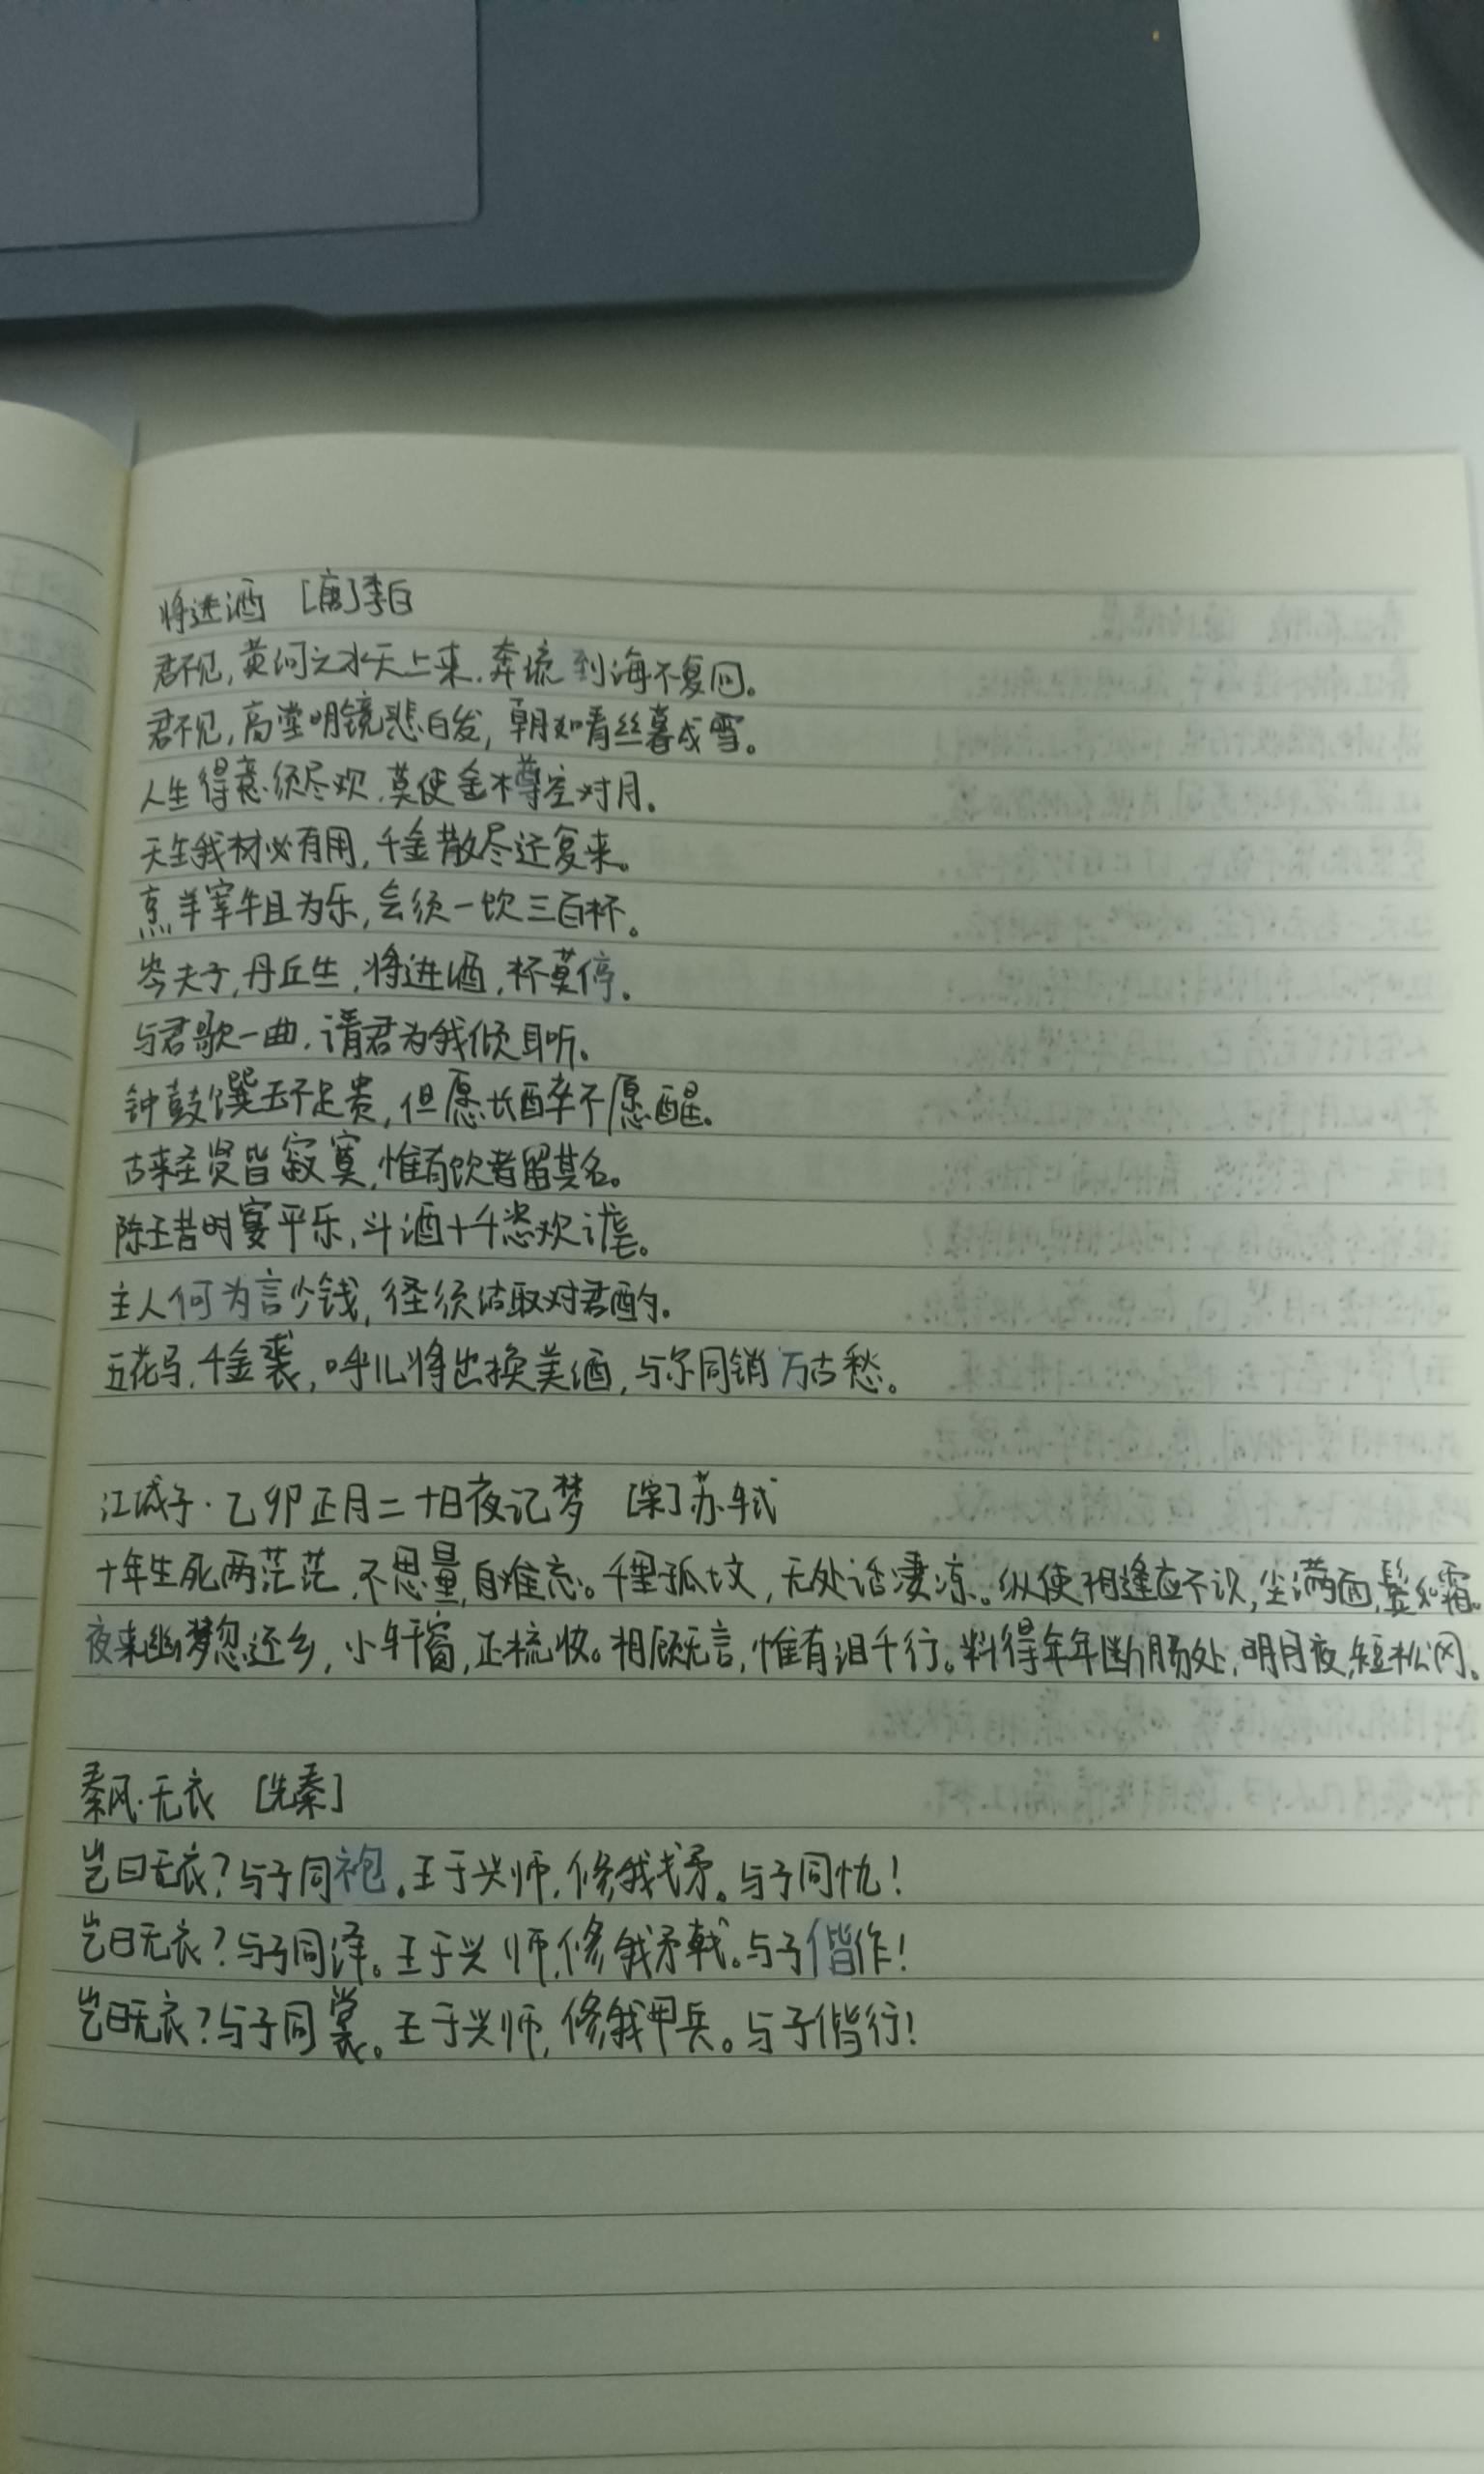 将进酒 [唐]李白
君不见,黄河之水天上来.奔流到海不复回。
君不见,高堂明镜悲白发,朝如青丝暮成雪。
人生得意须尽欢,莫使金樽空对月。
天生我材必有用,千金散尽还复来。
烹羊宰牛且为乐,会须一饮三百杯。
岑夫子,丹丘生,将进酒,杯莫停。
与君歌一曲.请君为我倾耳听。
钟鼓馔玉不足贵,但愿长醉不愿醒。
古来圣贤皆寂寞,惟有饮者留其名。
陈王昔时宴平乐,斗酒十千恣欢谑。
主人何为言少钱,径须沽取对君酌。
五花马,千金裘,呼儿将出换美酒,与尔同销万古愁。
江城子·乙卯正月二十日夜记梦 [宋]苏轼
十年生死两茫茫,不思量,自难忘。千里孤坟,无处话凄凉。纵使相逢应不识,尘满面,鬓如霜。
夜来幽梦忽还乡,小轩窗,正梳妆。相顾无言,惟有泪千行。料得年年断肠处,明月夜,短松冈。
秦风·无衣 [先秦]
岂曰无衣?与子同袍。王于兴师,修我戈矛。与子同仇!
岂曰无衣?与子同泽。王于兴师,修我矛戟。与子偕作!
岂曰无衣?与子同裳。王于兴师,修我甲兵。与子偕行!